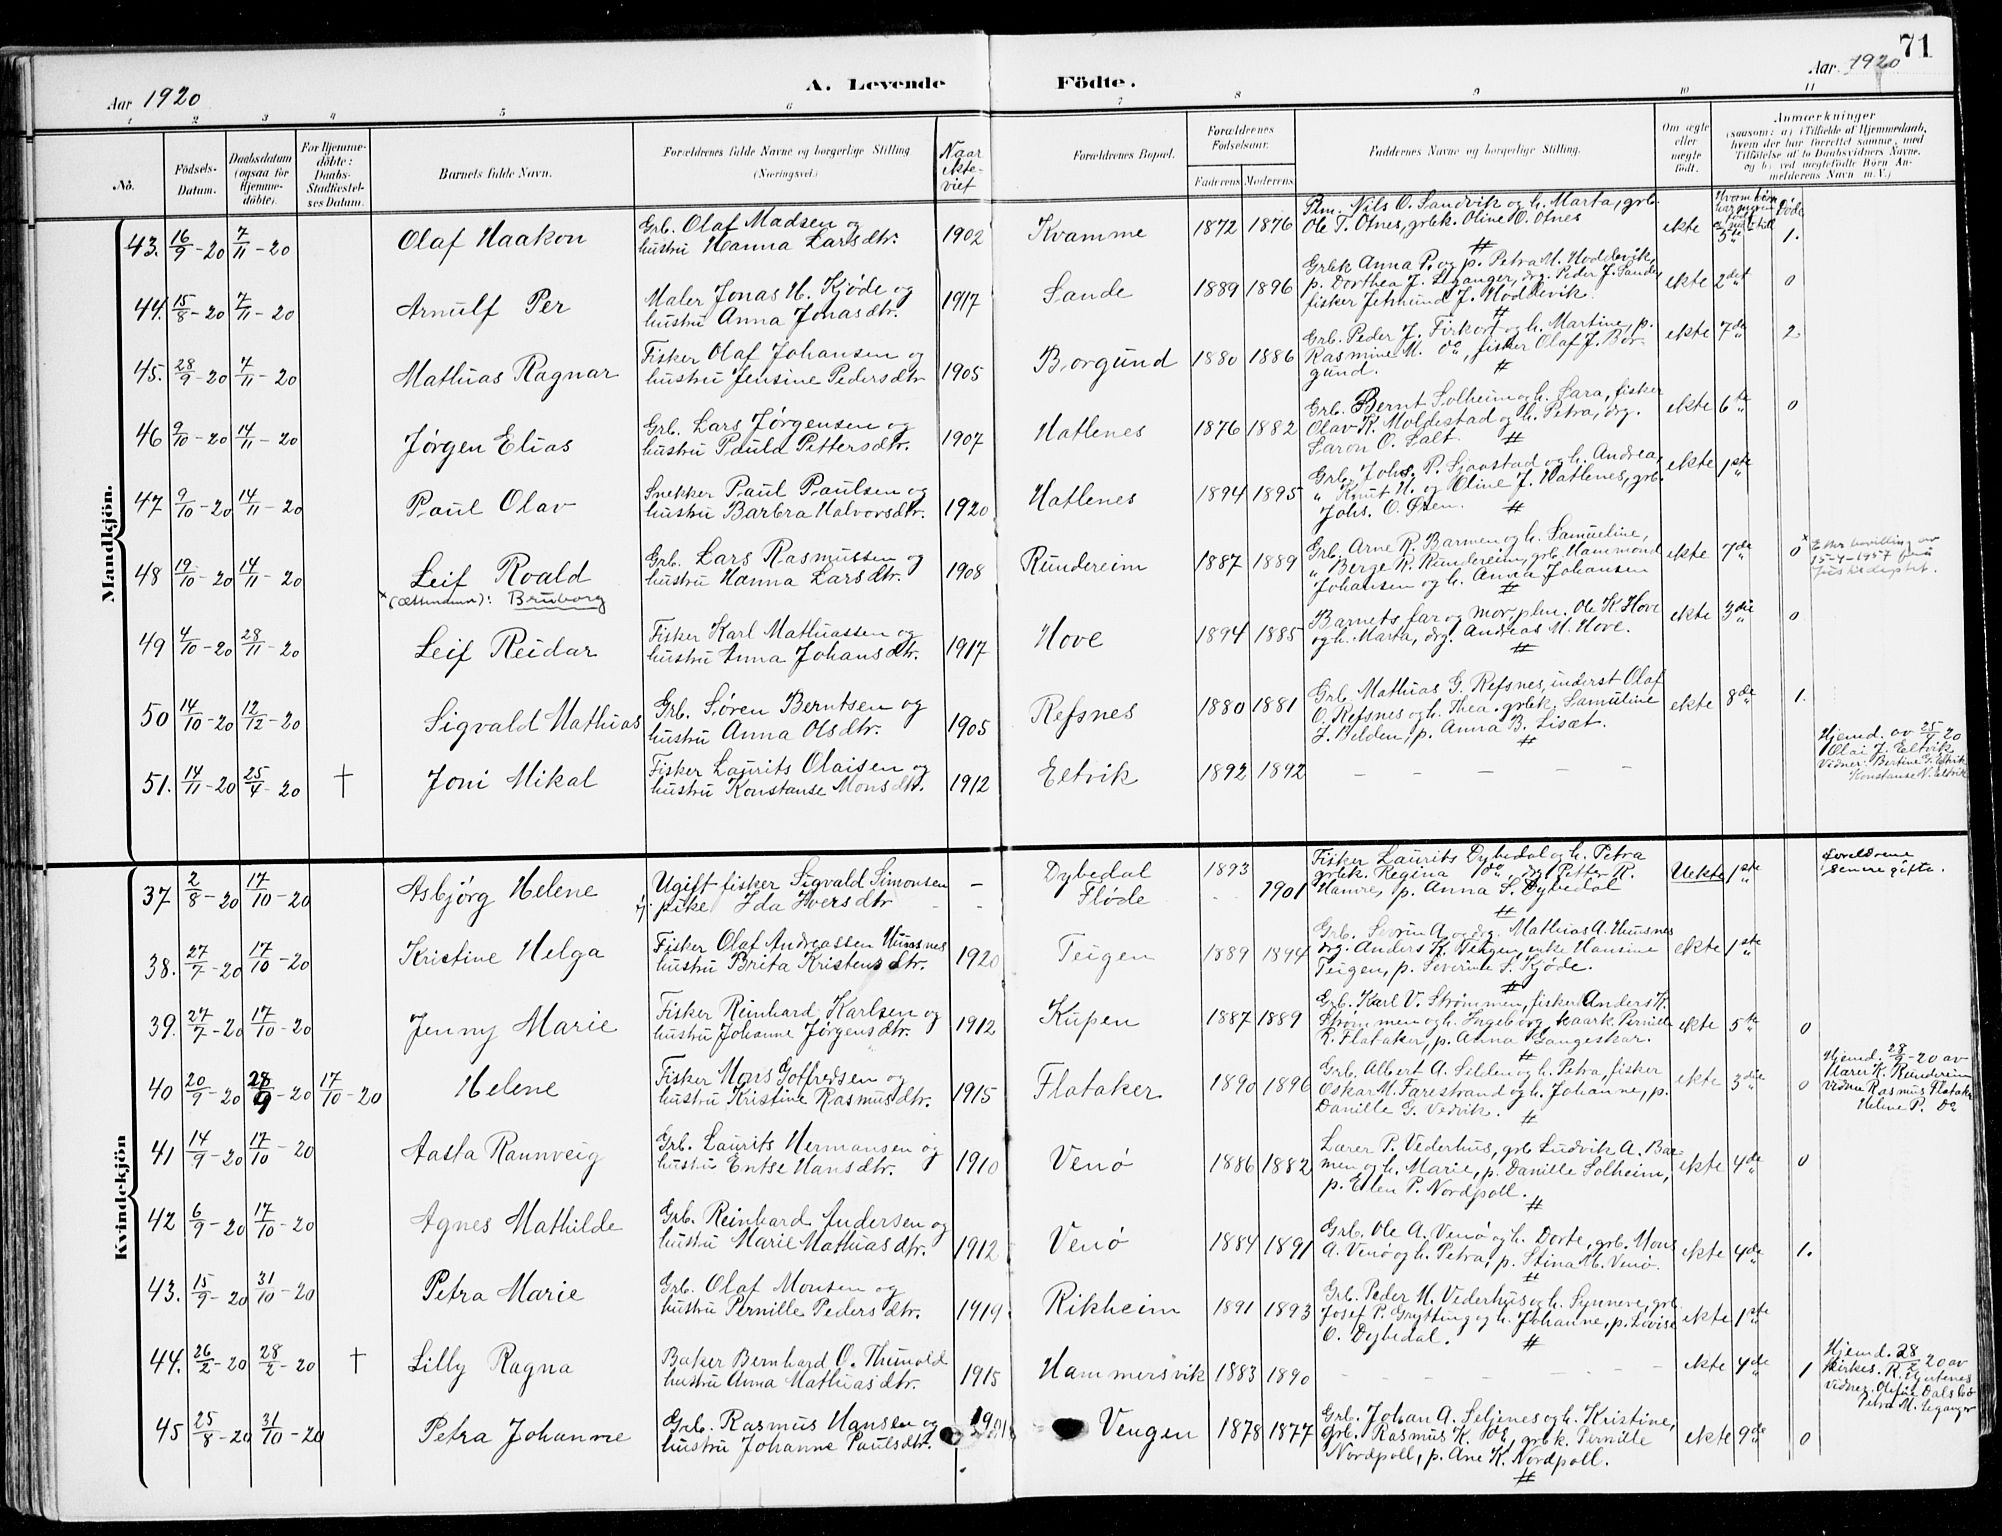 71
Aar 1920
A. Levende
Födte.
Aar 1920
1 2 3 4 5 6 7 8 9 10 11
No.
Födsels-Datum.
Daabsdatum (ogsaa for Hjemmedöbte).
For Hjemmedöbte: Daabs-Stadfæstelses Datum.
Barnets fulde Navn.
Forældrenes fulde Navne og borgerlige Stilling (Næringsvei.)
Naar ekteviet
Forældrenes Bopæl.
Forældrenes Födselsaar.
Faderens Moderens
Faddernes Navne og borgerlige Stilling.
Om ægte eller uægte födt.
Anmærkninger
(saasom: a) i Tilfælde af Hjemmedaab, hvem der har forrettet samme, med Tilföielse af to Daabsvidners Navne, og b) ved uægtefödte Börn Anmelderens Navn m. V.)
Mandkjön.
43. 16/9-20 7/11-20 Olaf Haakon
Grb. Olaf Madsen og
hustru Hanna Larsdtr. 1902 Kvamme 1872 1876
Plm. Nils O. Sandvik og h. Marta, grb.
Ole T. Otnes, grbk. Oline O. Otnes
ekte 5te 1.
44. 15/8-20 7/11-20 Arnulf Per
Maler Jonas H. Kjøde og
hustru Anna Jonasdtr. 1917 Sande 1889 1896
Grbk Anna P. og p. Petra M. Hoddevik,
p. Dorthea J. Leganger, drg. Peder J. Sande,
fisker Jetmund J. Hoddevik.
ekte 2det 0
45. 28/9-20 7/11-20 Mathias Ragnar
Fisker Olaf Johansen og
hustru Jensine Pedersdtr 1905 Borgund 1880 1886
Grb. Peder J. Firkort og h. Martine, p.
Rasmine M. do, fisker Olaf J. Bor-
gund.
ekte 7de 2
46 9/10-20 14/11-20 Jørgen Elias
Grb. Lars Jørgensen og
hustru Paula Pettersdtr. 1907 Hatlenes 1876 1882
Grb. Bernt Solheim og h. Sara, fisker
Olav K. Moldestad og h. Petra, drg.
Saron O. Salt
ekte 6te 0
47 9/10-20 14/11-20 Paul Olav
Snekker Paul Paulsen og
hustru Barbra Halvorsdtr. 1920 Hatlenes 1894 1895
Grb. Johs. P. Sjaastad og h. Andrea,
" Knut H. og Oline J. Hatlenes, grb.
Johs. O. Øren.
ekte 1ste
48 19/10-20 14/11-20 Leif Roald
x (Ættenavn): Bruborg
Grb. Lars Rasmussen og
hustru Hanna Larsdtr. 1908 Rundereim 1887 1889
Grb. Arne R. Barmen og h. Samueline,
" Berge R. Rundereim, grb. Hammond
Johansen og h. Anna Johansen
ekte 7de 0
x Etter bevilling av
15-4-1957 fra
justisdeptet.
49 4/10-20 28/11-20 Leif Reidar
Fisker Karl Mathiassen og
hustru Anna Johansdtr. 1917 Hove 1894 1885
Barnets far og mor, plm. Ole K. Hove
og h. Marta, drg. Andreas M. Hove.
ekte 3die 0
50 14/10-20 12/12-20 Sigvald Mathias
Grb. Søren Berntsen og
hustru Anna Olsdtr. 1905 Refsnes 1880 1881
Grb. Mathias G. Refsnes, inderst Olaf
O. Refsnes og h. Thea, grbk. Samuline
J. Belden, p. Anna B. Lisæt.
ekte 8de 1.
51. 14/11-20 25/4-20 † Joni Mikal
Fisker Laurits Olaisen og
hustru Konstanse Monsdtr. 1912 Eltvik 1892 1892
– – – – –
Hjemd. av 25/4 20
Olai J. Eltvik
Vidner: Bertine G. Eltvik
Konstanse N. Eltvik
Kvindekjön
37 2/8-20 17/10-20 Asbjörg Helene
Ugift fisker Sigvald Simonsen
pike Ida Iversdtr – Dybedal
Fløde 1893
1901
Fisker Laurits Dybedal og h. Petra
grbk. Regina do, drg. Petter R.
Hamre, p. Anna S. Dybedal
Uekte 1ste
Foreldrene
senere gifte.
38. 27/7-20 17/10-20 Kristine Helga
Fisker Olaf Andreassen Husnes
hustru Brita Kristensdtr. 1920 Teigen 1889 1894
Grb. Sevrin A. og drg. Mathias A. Husnes
drg. Anders K. Teigen, enke Hansine
Teigen, p. Severine S. Kjøde.
ekte 1ste
39. 27/7-20 17/10-20 Jenny Marie
Fisker Reinhard Karlsen og
hustru Johanne Jørgensdtr. 1912 Kupen 1887 1889
Grb. Karl V. Strømmen, fisker Anders K.
Strømmen og h. Ingeborg, kaark. Pernille
L. Flataker, p. Anna Gangeskar.
ekte 5te 0
40 20/9-20 28/9-20 17/10-20 Helene
Fisker Mons Gotfredsen og
hustru Kristine Rasmusdtr. 1915 Flataker 1890 1896
Grb. Albert A. Sellen og h. Petra, fisker
Oskar M. Farestrand og h. Johanne, p.
Danille G. Vedvik.
ekte 3die 0
Hjemd. 28/9-20 av
Maren K. Rundereim
Vidner Rasmus Flataker
Helene P. Do
41 14/9-20 17/10-20 Aasta Rannveig
Grb. Laurits Hermansen og
hustru Entse Hansdtr. 1910 Venø 1886 1882
Lærer P. Vederhus, grb. Ludvik A. Bar-
men og h. Marie, p. Danille Solheim,
p. Ellen P. Nordpoll.
ekte 4de 0
42 6/9-20 17/10-20 Agnes Mathilde
Grb. Reinhard Andersen og
hustru Marie Mathiasdtr. 1912 Venø 1884 1891
Grb. Ole A. Venø og h. Dorte, grb. Mons
A. Venø og h. Petra, p. Stina H. Venø.
ekte 4de 1.
43. 15/9-20 31/10-20 Petra Marie
Grb. Olaf Monsen og
hustru Pernille Pedersdtr. 1919 Rikheim 1891 1893
Grb. Peder H. Vederhus og h. Synneve, grb.
Josef P. Grytting og h. Johanne, p. Lovise
O. Dybedal.
ekte 1ste
44. 26/2-20 28/2-20 † Lilly Ragna
Baker Bernhard O. Thunold
hustru Anna Mathiasdtr. 1915 Hammersvik 1883 1890
– – – – – –
ekte 4de 1
Hjemd. 28/2 20 av
kirkes. R. Hjertenes
vidner. Oline Dalsbø
Petra M. Leganger
45 25/8-20 31/10-20 Petra Johanne
Grb. Rasmus Hansen og
hustru Johanne Paulsdtr. 1901 Vengen 1878 1877
Grb. Johan A. Seljenes og h. Kristine,
Grb. Rasmus K. do, grbk. Pernille
Nordpoll, p. Ane K. Nordpoll.
ekte 9de 0